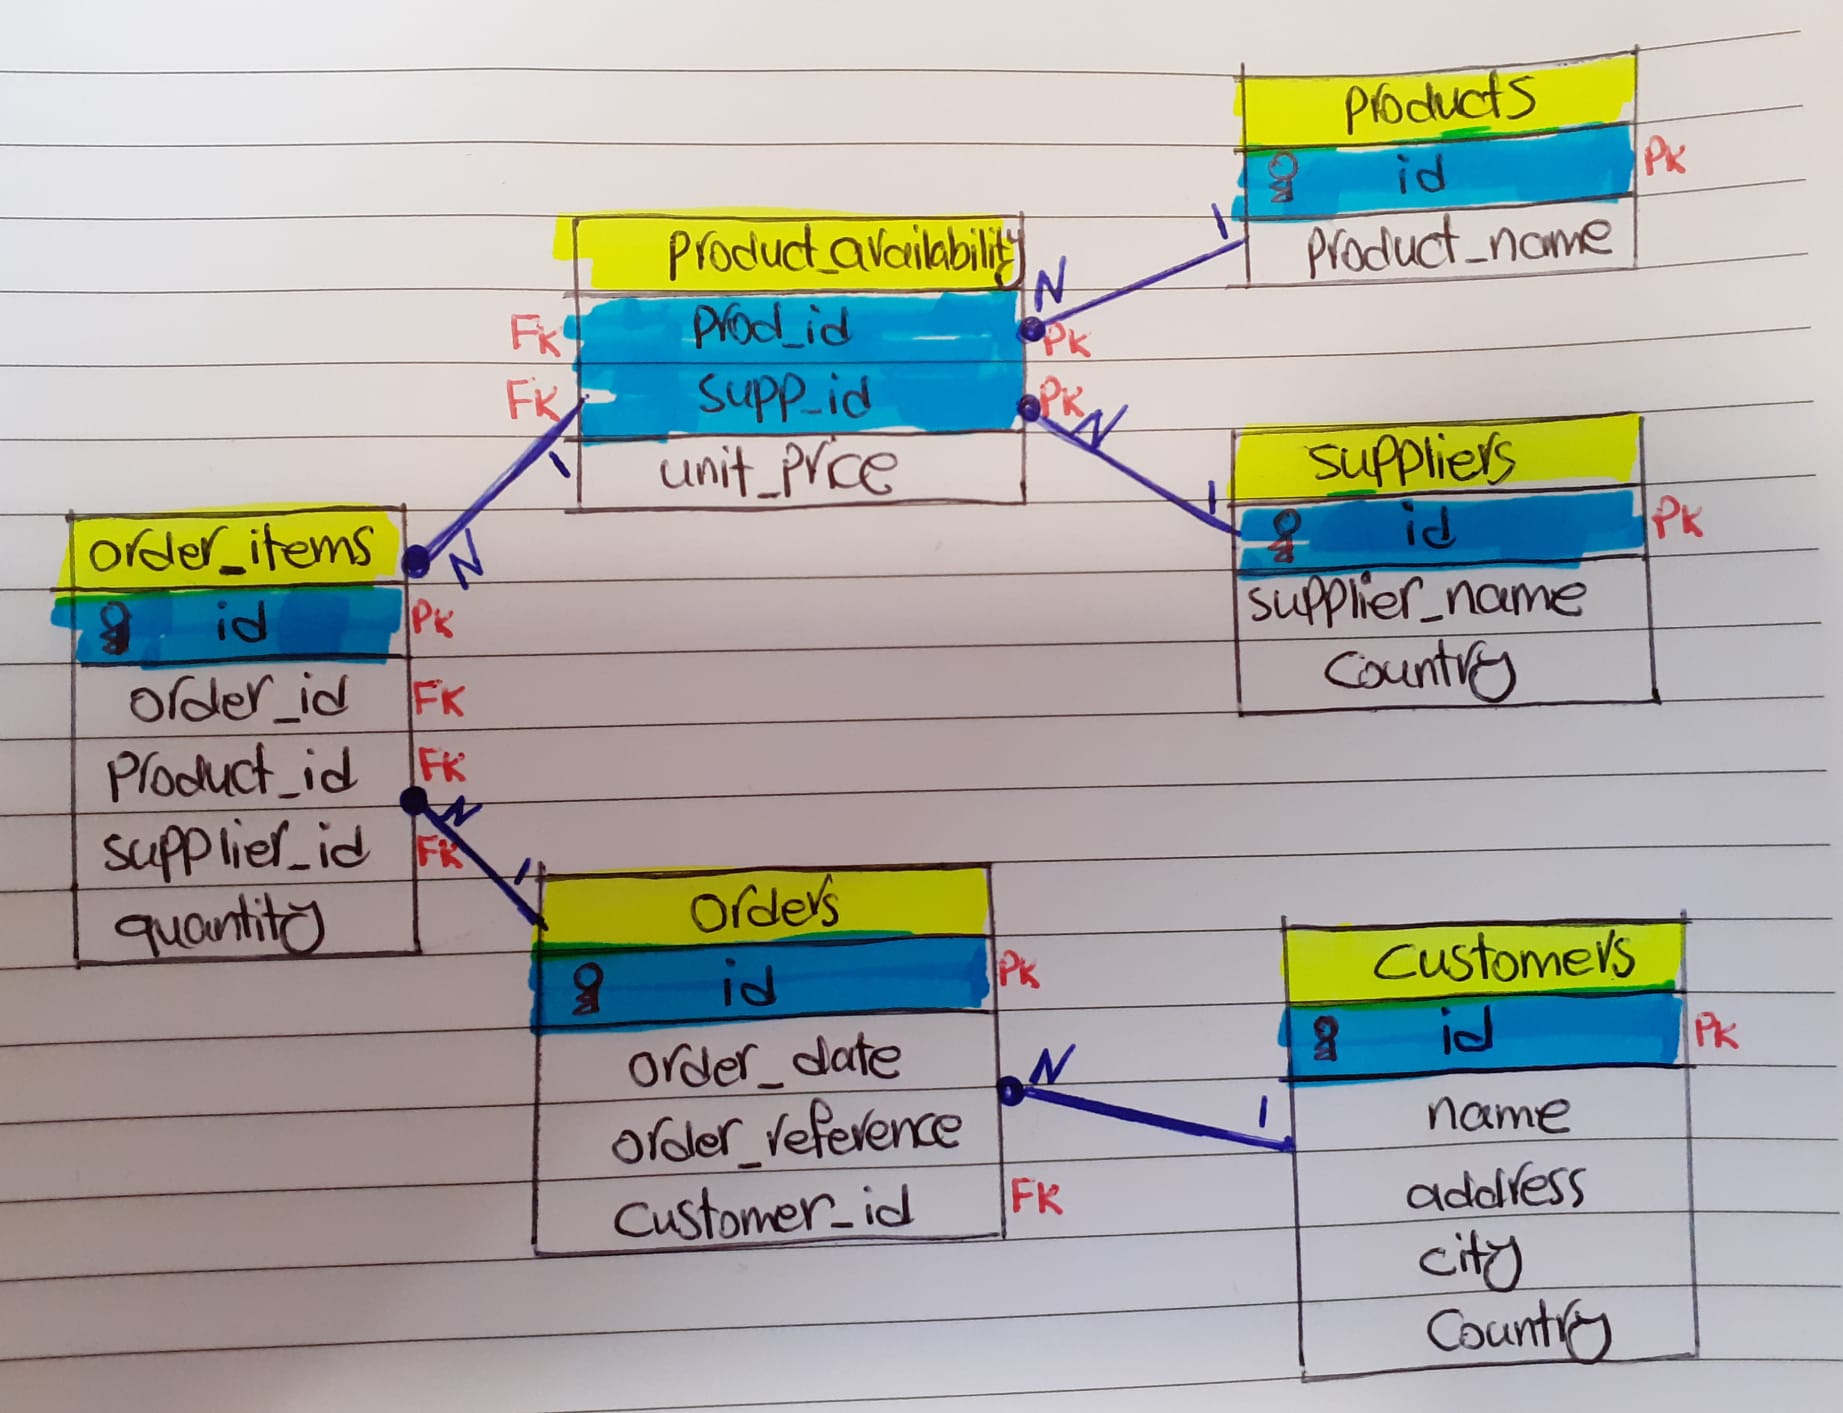 products
id PK
product_name
N 1
product_availability
FK prod_id PK
FK supp_id PK
unit_price
N 1
suppliers
id PK
supplier_name
country
1 N
order_items
id PK
order_id FK
product_id FK
supplier_id FK
quantity
N 1
orders
id PK
order_date
order_reference
customer_id FK
N 1
customers
id PK
name
address
city
country